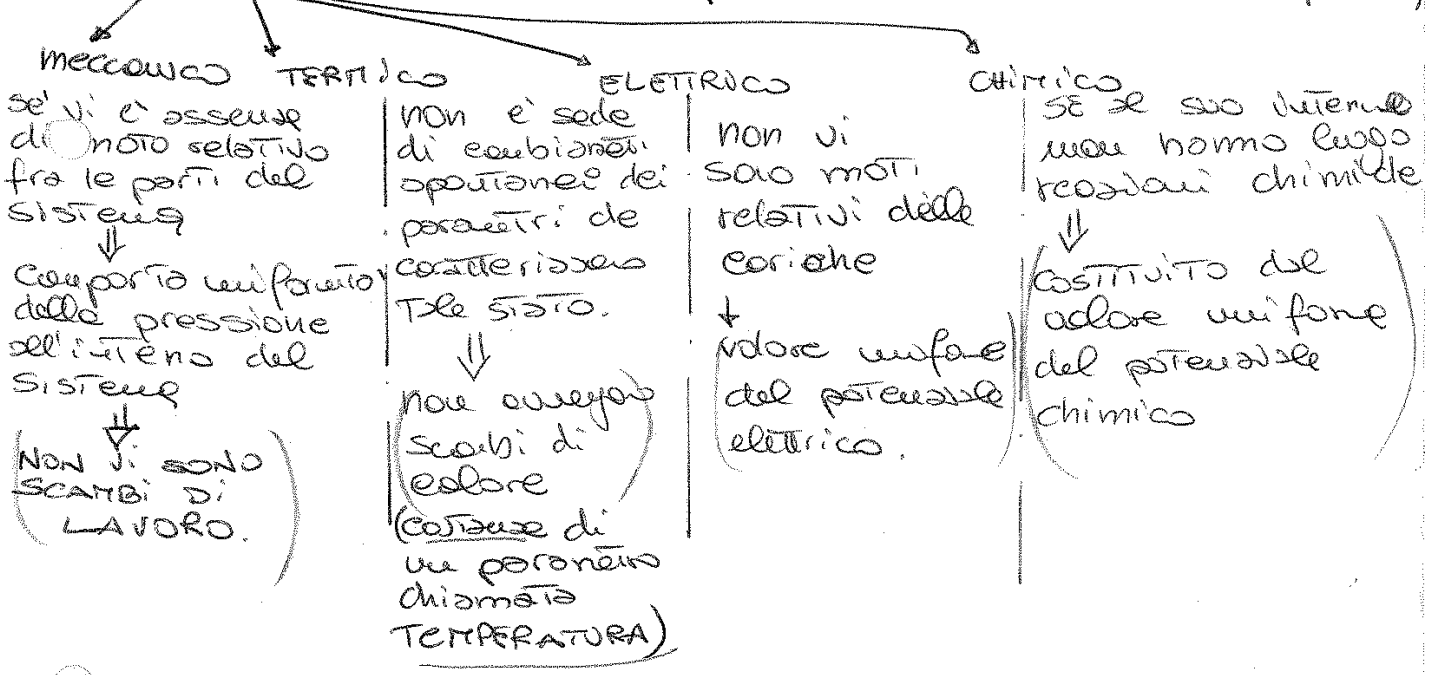 meccanico
se' vi è assenza
di moto relativo
fra le parti del
sistema
⇓
comporta uniformità
della pressione
all'interno del
sistema
⇓
(NON Vi SONO
SCAMBi Di
LAVORO.)
TERMICO
non è sede
di cambiamenti
spontanei dei
parametri che
caratterizzano
tale stato.
⇓
(non avvengono
scambi di
calore)
(costanza di
un parametro
chiamato
TEMPERATURA)
ELETTRICO
non vi
sono moti
relativi delle
cariche
↓
valore uniforme
del potenziale
elettrico.
CHIMICO
SE al suo interno
non hanno luogo
reazioni chimiche
⇓
(COSTITUITO dal
valore uniforme
del potenziale
chimico)